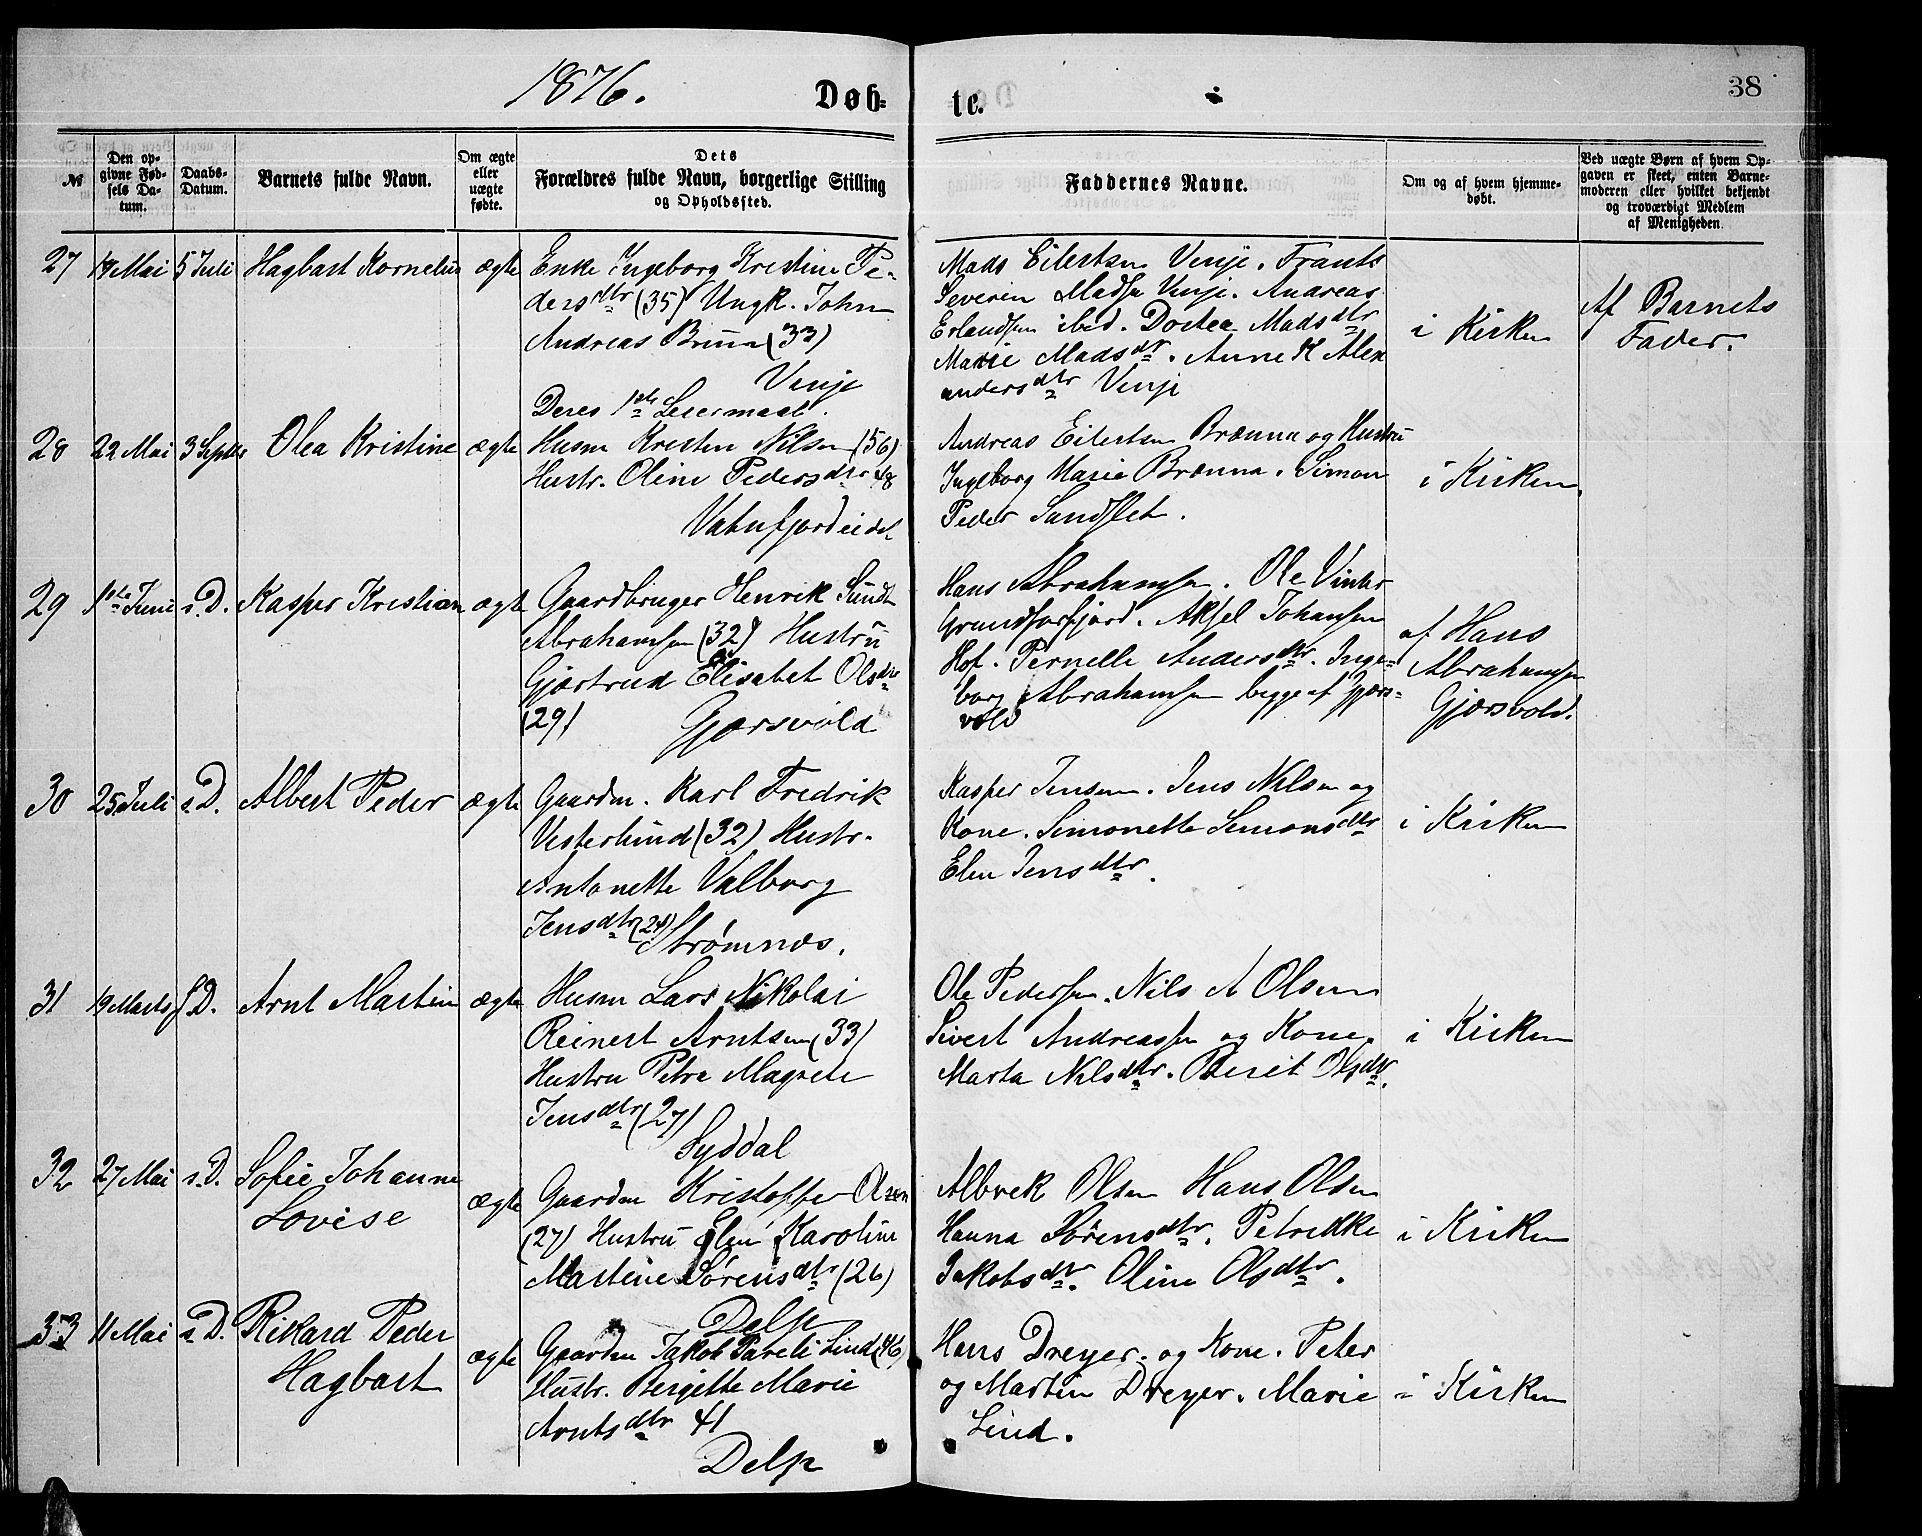 1876.
Døb-
te.
38
№
Den op-
givne Fød-
sels Da-
tum.
Daabs-
Datum.
Barnets fulde Navn.
Om ægte
eller
uægte
fødte.
Dets
Forældres fulde Navn, borgerlige Stilling
og Opholdssted.
Faddernes Navne.
Om og af hvem hjemme-
døbt.
Ved uægte Børn af hvem Op-
gaven er skeet, enten Barne-
moderen eller hvilket bekjendt
og troværdigt Medlem
af Menigheden.
27
19 Mai
5 Juli
Hagbart Kornelius
ægte
Enke Ingeborg Kristine Pe-
dersdtr (35) Ungk. John
Andreas Bruun (33)
Venje
Deres 1ste Leiermaal.
Mads Eilertsen Venje. Frants
Severin Madsen Venje. Andreas
Erlandsen ibid. Dortea Madsdtr
Marie Madsdtr. Anne K Alex
andersdtr Venje
i Kirken
Af Barnets
Fader.
28
22 Mai
3 Septbr
Olea Kristine
ægte
Husm Kresten Nilsen (56)
Hustr. Oline Pedersdtr 48
Vatnfjordeidet
Andreas Eilertsen Brænna og Hustru
Ingeborg Marie Brænna. Simon
Peder Sandslet.
i Kirken
29
1ste Juni
s. D.
Kasper Kristian
ægte
Gaardbruger Henrik Sundt
Abrahamsen (32) Hustru
Gjertrud Elisabet Olsdtr
(29) Gjærsvold
Hans Abrahamsen. Ole Vinter
Grundforfjord. Aksel Johansen
Hof. Pernelle Andersdtr. Inge-
borg Abrahamsen begge af Gjærs-
vold
af Hans
Abrahamsen
Gjærsvold.
30
25 Juli
s. D.
Albert Peder
ægte
Gaardm. Karl Fredrik
Vesterlund (32) Hustr.
Antonette Valborg
Jensdtr (24)
Strømnæs.
Kasper Jensen. Jens Nilsen og
Kone. Simonette Simonsdtr
Elen Jensdtr.
i Kirken
31
19 Marts
s. D.
Arnt Martin
ægte
Husm Lars Nikolai
Reinert Arntsen (33)
Hustru Petra Magrete
Jensdtr (27)
Syddal
Ole Pedersen. Nils A Olsen
Sivert Andreassen og Kone.
Marta Nilsdtr. Berit Olsdtr.
i Kirken
32
27 Mai
s. D.
Sofie Johanne
Lovise
ægte
Gaardm Kristoffer Olsen
(27) Hustru Elen Karoline
Martine Sørensdtr (26)
Delp
Albrek Olsen Hans Olsen
Hanna Sørensdtr. Petrikke
Jakobsdtr. Oline Olsdtr.
i Kirken
33
11 Mai
s. D.
Rikard Peder
Hagbart
ægte
Gaardm Jakob Pareli Lind (46)
Hustr. Bergitte Marie
Arntsdtr 41
Delp
Hans Dreyer. og Kone. Peter
og Martin Dreyer. Marie
Lind.
i Kirken